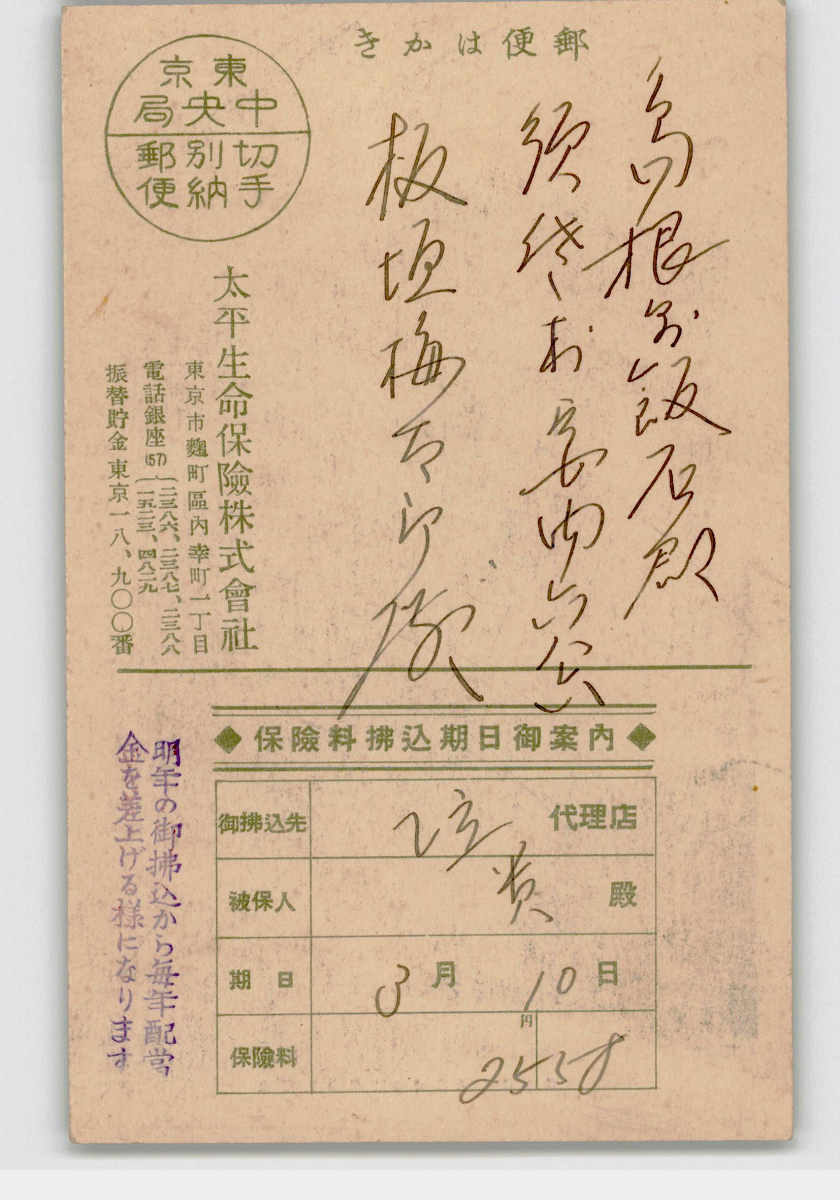 郵便はかき
東京
中央局
切手
別納
郵便
島根県飯石郡
須佐村
板垣梅太郎殿
太平生命保險株式會社
東京市麴町區內幸町一丁目
電話銀座(57)(二三八六、二三八七、二三八八
一五二三、四八二九
振替貯金東京一八、九〇〇番
◆保險料拂込期日御案內◆
御拂込先 代理店
被保人 貴殿
期日 3月10日
保險料 円 2558
明年の御拂込から毎年配當
金を差上げる様になります